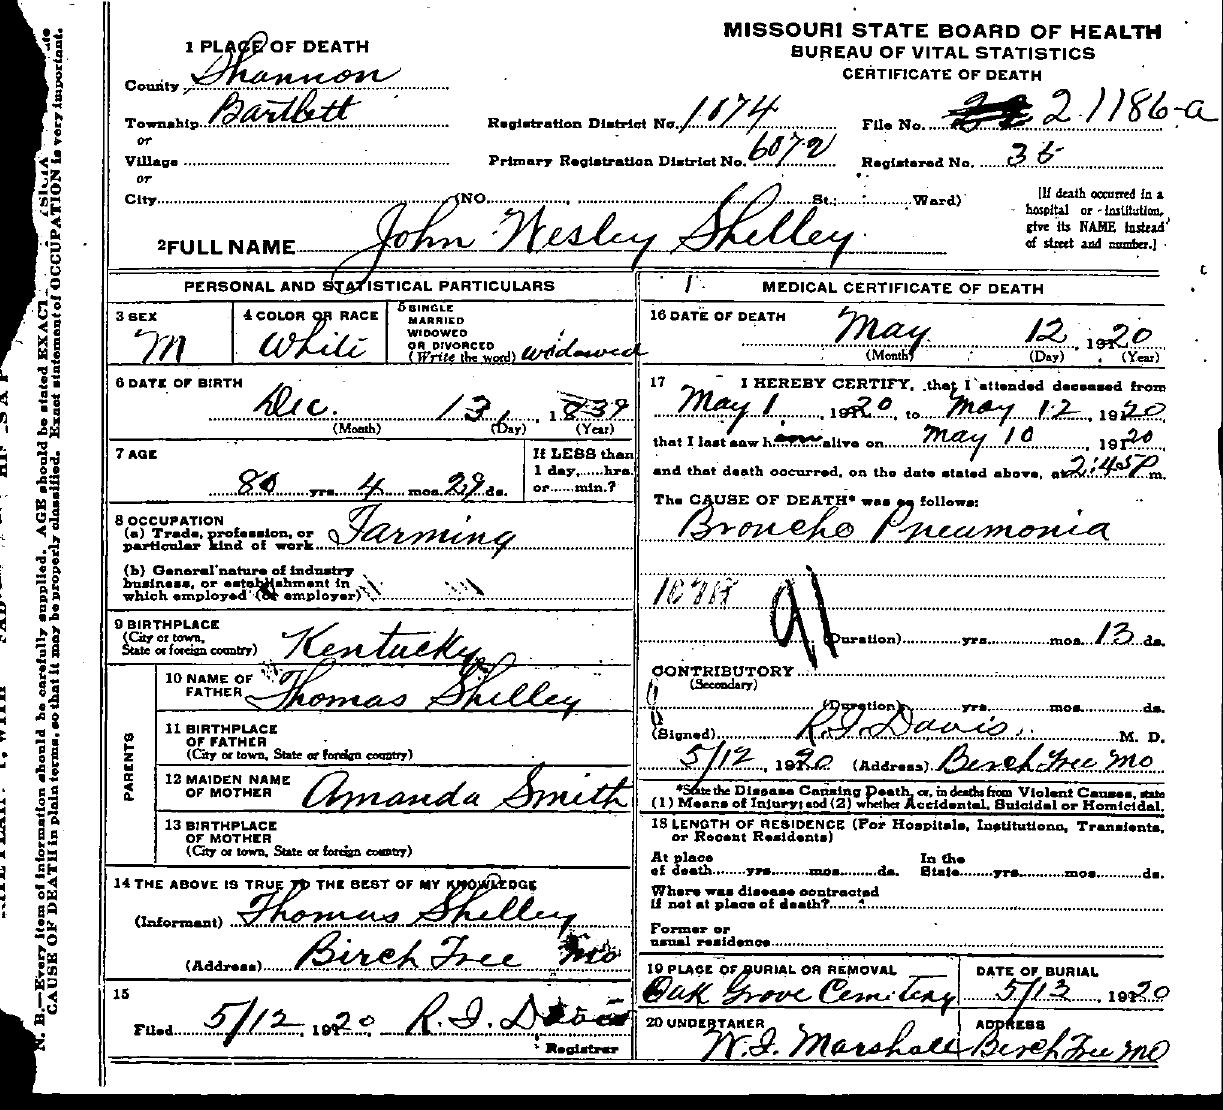 MISSOURI STATE BOARD OF HEALTH
BUREAU OF VITAL STATISTICS
CERTIFICATE OF DEATH
1 PLACE OF DEATH
County Shannon
Township Bartlett
or
Village
or
City (NO. St.; Ward)
Registration District No. 1074
Primary Registration District No. 6072
File No. 21186-a
Registered No. 36
[If death occurred in a
hospital or institution,
give its NAME instead
of street and number.]
2 FULL NAME John Wesley Shelley
PERSONAL AND STATISTICAL PARTICULARS
3 SEX
M
4 COLOR OR RACE
White
5 SINGLE
MARRIED
WIDOWED
OR DIVORCED
(Write the word) widowed
6 DATE OF BIRTH
Dec. 13, 1839
(Month) (Day) (Year)
7 AGE
80 yrs. 4 mos. 29 ds.
If LESS than
1 day,......hrs.
or......min.?
8 OCCUPATION
(a) Trade, profession, or
particular kind of work Farming
(b) General nature of industry
business, or establishment in
which employed (or employer)
9 BIRTHPLACE
(City or town,
State or foreign country) Kentucky
PARENTS
10 NAME OF
FATHER Thomas Shelley
11 BIRTHPLACE
OF FATHER
(City or town, State or foreign country)
12 MAIDEN NAME
OF MOTHER Amanda Smith
13 BIRTHPLACE
OF MOTHER
(City or town, State or foreign country)
14 THE ABOVE IS TRUE TO THE BEST OF MY KNOWLEDGE
(Informant) Thomas Shelley
(Address) Birch Tree Mo
15
Filed 5/12, 1920 R. I. Davis
Registrar
MEDICAL CERTIFICATE OF DEATH
16 DATE OF DEATH
May 12, 1920
(Month) (Day) (Year)
17 I HEREBY CERTIFY, that I attended deceased from
May 1, 1920, to May 12 1920
that I last saw him alive on May 10 1920
and that death occurred, on the date stated above, at 2:45 P m.
The CAUSE OF DEATH* was as follows:
Broncho Pneumonia
91
(Duration) yrs. mos. 13 ds.
CONTRIBUTORY
(Secondary)
(Duration) yrs. mos. ds.
(Signed) R. I. Davis, M. D.
5/12, 1920 (Address) Birch Tree Mo
*State the Disease Causing Death, or, in deaths from Violent Causes, state
(1) Means of Injury; and (2) whether Accidental, Suicidal or Homicidal.
18 LENGTH OF RESIDENCE (For Hospitals, Institutions, Transients,
or Recent Residents)
At place
of death......yrs......mos......ds.
In the
State......yrs......mos......ds.
Where was disease contracted
if not at place of death?
Former or
usual residence
19 PLACE OF BURIAL OR REMOVAL
Oak Grove Cemetery
DATE OF BURIAL
5/13, 1920
20 UNDERTAKER
W. I. Marshall
ADDRESS
Birch Tree Mo
N. B.—Every item of information should be carefully supplied. AGE should be stated EXACT
CAUSE OF DEATH in plain terms, so that it may be properly classified. Exact statement of OCCUPATION is very important.